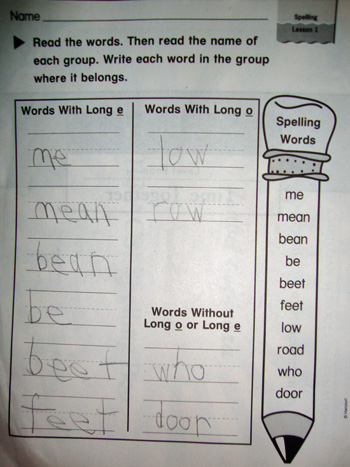 Name
Spelling
Lesson 1
Read the words. Then read the name of
each group. Write each word in the group
where it belongs.
Words With Long e
me
mean
bean
be
beet
feet
Words With Long o
low
row
Words Without
Long o or Long e
who
door
Spelling
Words
me
mean
bean
be
beet
feet
low
road
who
door
© Harcourt